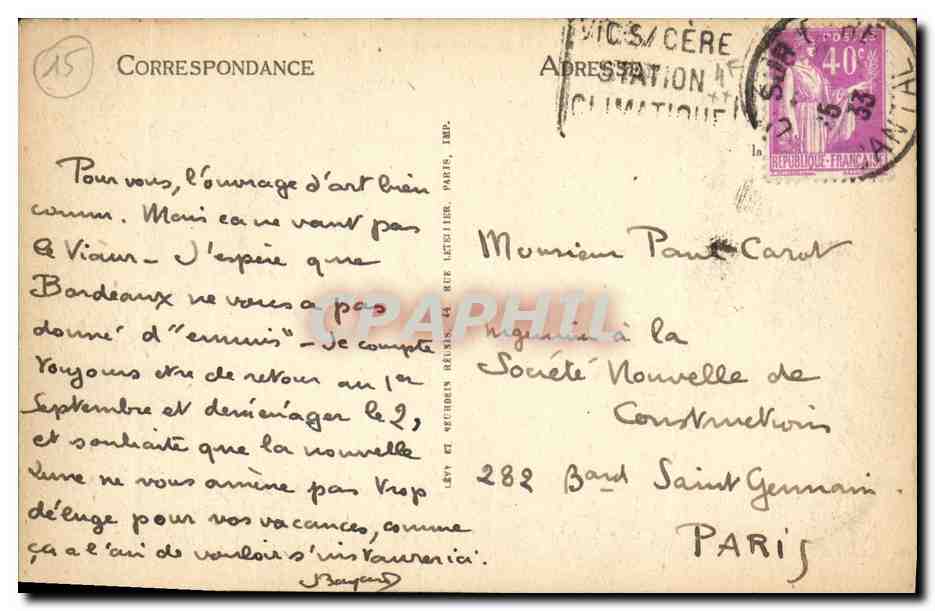 15
CORRESPONDANCE
ADRESSE
VIC S/CÈRE
STATION
CLIMATIQUE
POSTES
40c
RÉPUBLIQUE-FRANÇAISE
SUR
CANTAL
33
la
Pour vous, l'ouvrage d'art bien
connu. Mais ça ne vaut pas
le Viaur - J'espère que
Bordeaux ne vous a pas
donné d'"ennuis" - Je compte
toujours être de retour au 1er
Septembre et deménager le 2,
et souhaite que la nouvelle
lune ne vous amène pas trop
déluge pour vos vacances, comme
ça a l'air de vouloir s'instaurer ici.
LÉVY ET NEURDEIN RÉUNIS, 44 RUE LETELLIER, PARIS, IMP.
Monsieur Paul Carot
Ingénieur à la
Société Nouvelle de
Constructions
282 Bard Saint Germain.
PARIS
CPAPHIL